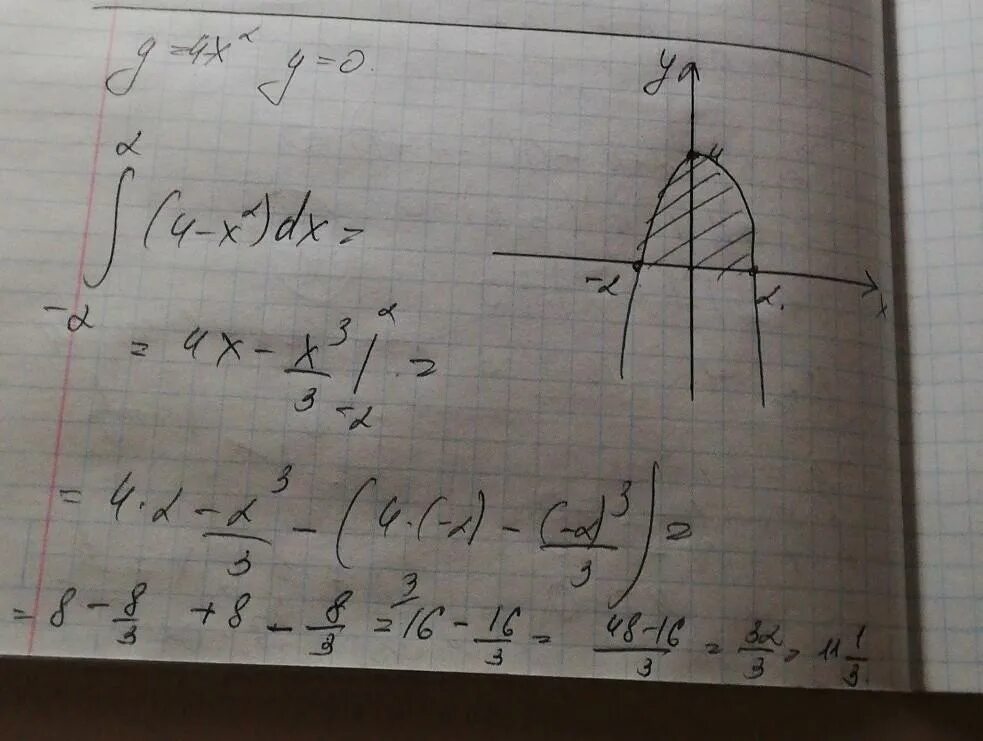 y = 4x² y = 0.
∫₋₂² (4 - x²) dx =
= 4x - x³/3 |₋₂² =
= 4·2 - 2³/3 - (4·(-2) - (-2)³/3) =
= 8 - 8/3 + 8 - 8/3 = ³/16 - 16/3 = 48-16/3 = 32/3 = 11 1/3.
y
4
-2
2.
x